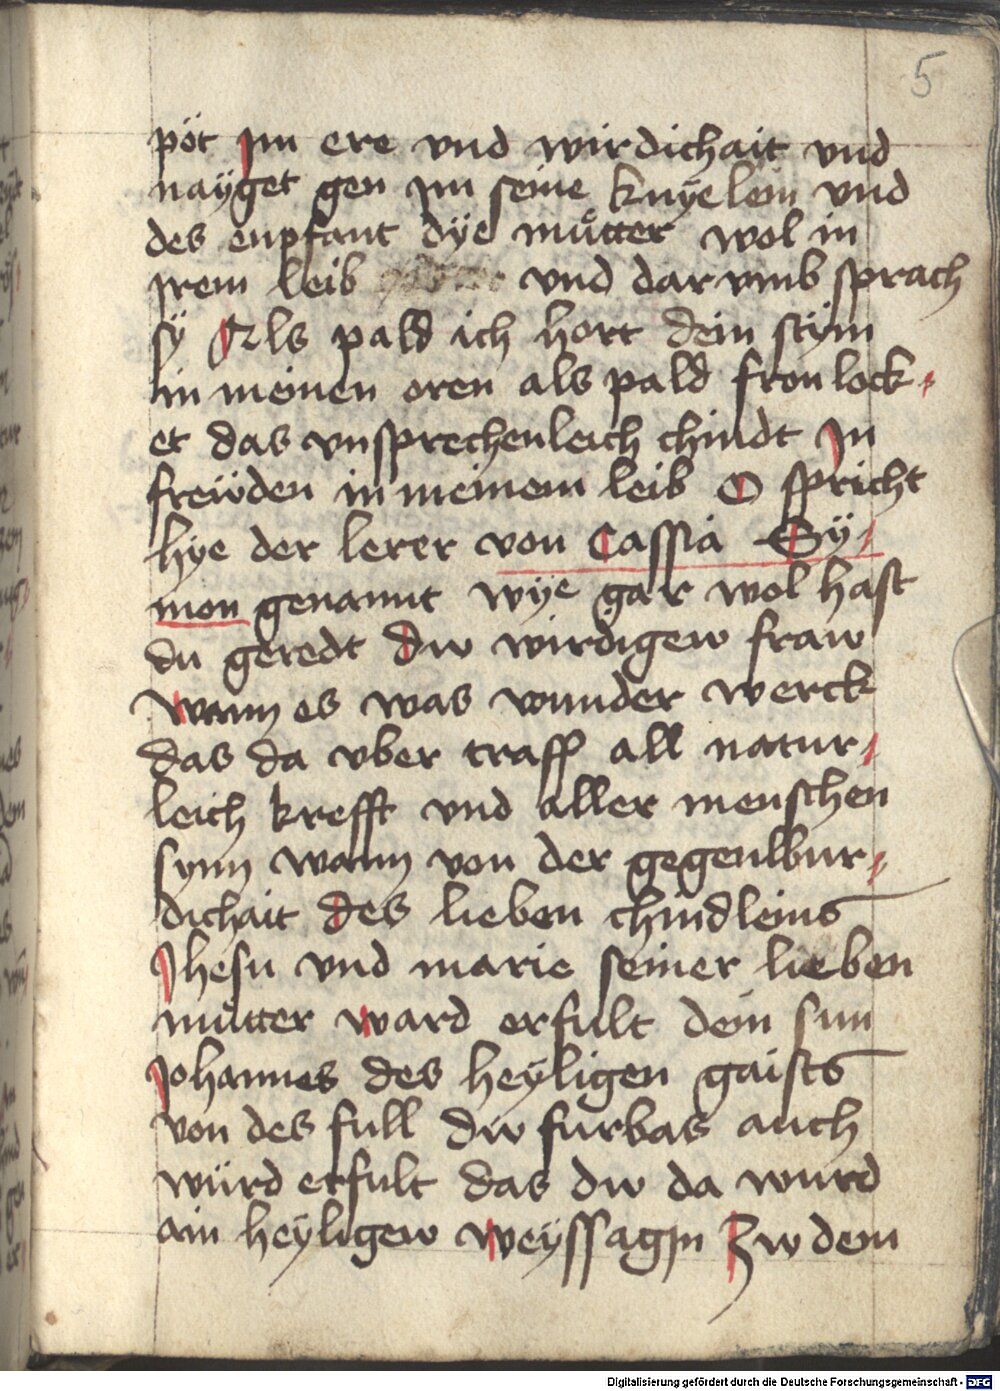 5
pöt Jm ere vnd wirdichait vnd
nayget gen jm seine knyelein vnd
des enpfant dÿe mutter wol in
jrem leib und dar vmb sprach
sÿ Als pald ich hort dein stÿm
in meinen oren als pald fron lock-
et das vnsprechenleich chindt Jn
freẅden in meinem leib O spricht
hye der lerer von Cassia Sÿ-
mon genannt wÿe gar wol hast
du geredt dw wirdigew fraw
wann es was wunder werck
das da vber traff all natur-
leich krefft vnd aller menschen
synn wann von der gegenbur-
dichait des lieben chindleins
Jhesu vnd marie seiner lieben
mutter ward erfult dein sun
Johannes des heÿligen gaists
von des full dw furbas auch
würd erfult das dw da wurd
ain heÿligew weyssagin Zw dem
Digitalisierung gefördert durch die Deutsche Forschungsgemeinschaft - DFG